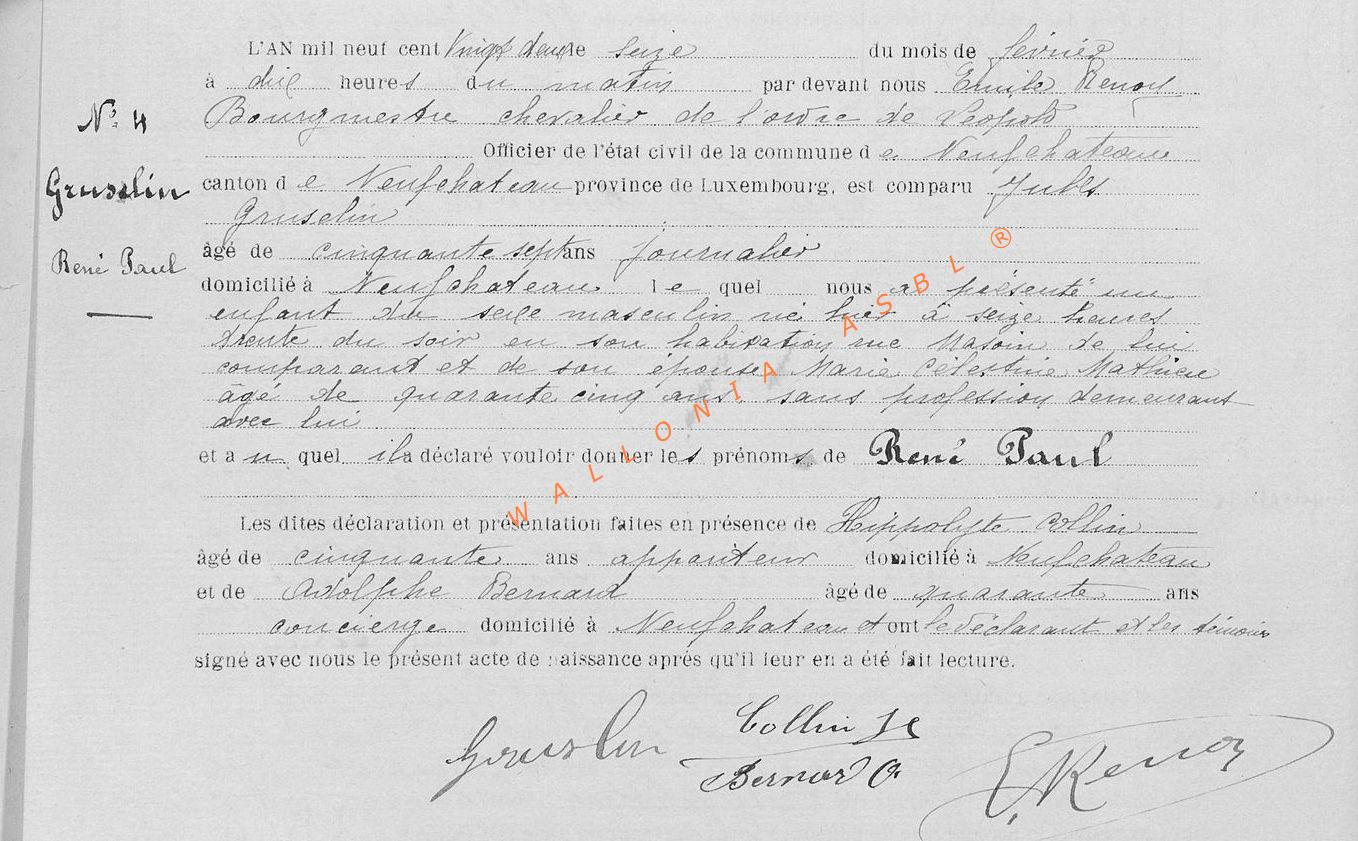 L'AN mil neuf cent Vingt deux le seize du mois de février
à dix heures du matin par devant nous Emile Renoy
Bourgmestre chevalier de l'ordre de Léopold
Officier de l'état civil de la commune de Neufchateau
N° 4
Gruselin
René Paul
canton de Neufchateau province de Luxembourg, est comparu Jules
Gruselin
âgé de cinquante sept ans journalier
domicilié à Neufchateau lequel nous a présenté un
enfant du sexe masculin né hier à seize heures
trente du soir en son habitation rue de lui
comparant et de son épouse Marie Célestine Mathieu
âgé de quarante cinq ans, sans profession demeurant
avec lui
et au quel il a déclaré vouloir donner les prénoms de René Paul
Les dites déclaration et présentation faites en présence de Hippolyte Collin
âgé de cinquante ans appariteur domicilié à Neufchateau
et de Adolphe Bernard âgé de quarante ans
concierge domicilié à Neufchateau et ont le déclarant et les témoins
signé avec nous le présent acte de naissance après qu'il leur en a été fait lecture.
Gruslin Collin H
Bernard A
E. Renoy
WALLONIA ASBL ®